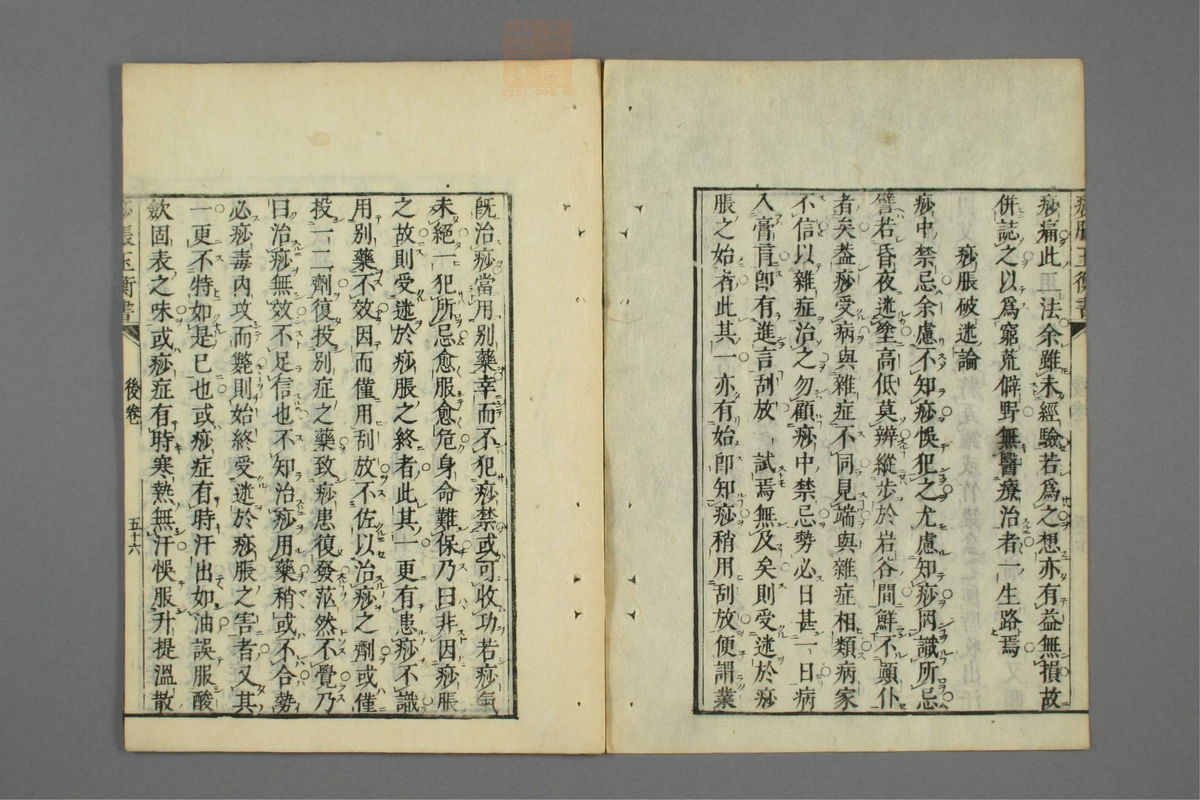 痧脹玉衡書
痧痛此 法余雖未經驗若爲之想亦有益無損故
併誌之以爲窮荒僻野無醫療治者一生路焉
痧脹破迷論
痧中禁忌余慮不知痧悞犯之尤慮知痧罔識所忌
譬若昏夜迷塗高低莫辨縱步於岩谷間鮮不顚仆
者矣葢痧受病與雜症不同見端與雜症相類病家
不信以雜症治之勿顧痧中禁忌勢必日甚一日病
入膏肓卽有進言刮放一試焉無及矣則受迷於痧
脹之始者此其一亦有始卽知痧稍用刮放便謂業
旣治痧當用别藥幸而不犯痧禁或可收功若痧氣
未絕一犯所忌愈服愈危身命難保乃曰非因痧脹
之故則受迷於痧脹之終者此其一更有患痧不識
用别藥不效因而僅用刮放不佐以治痧之劑或僅
投一二劑復投别症之藥致痧患復發茫然不覺乃
曰治痧無效不足信也不知治痧用藥稍或不合勢
必痧毒內攻而斃則始終受迷於痧脹之害者又其
一更不特如是已也或痧症有時汗出如油誤服酸
斂固表之味或痧症有時寒熱無汗悞服升提溫散
痧脹玉衡書
後卷
五十六